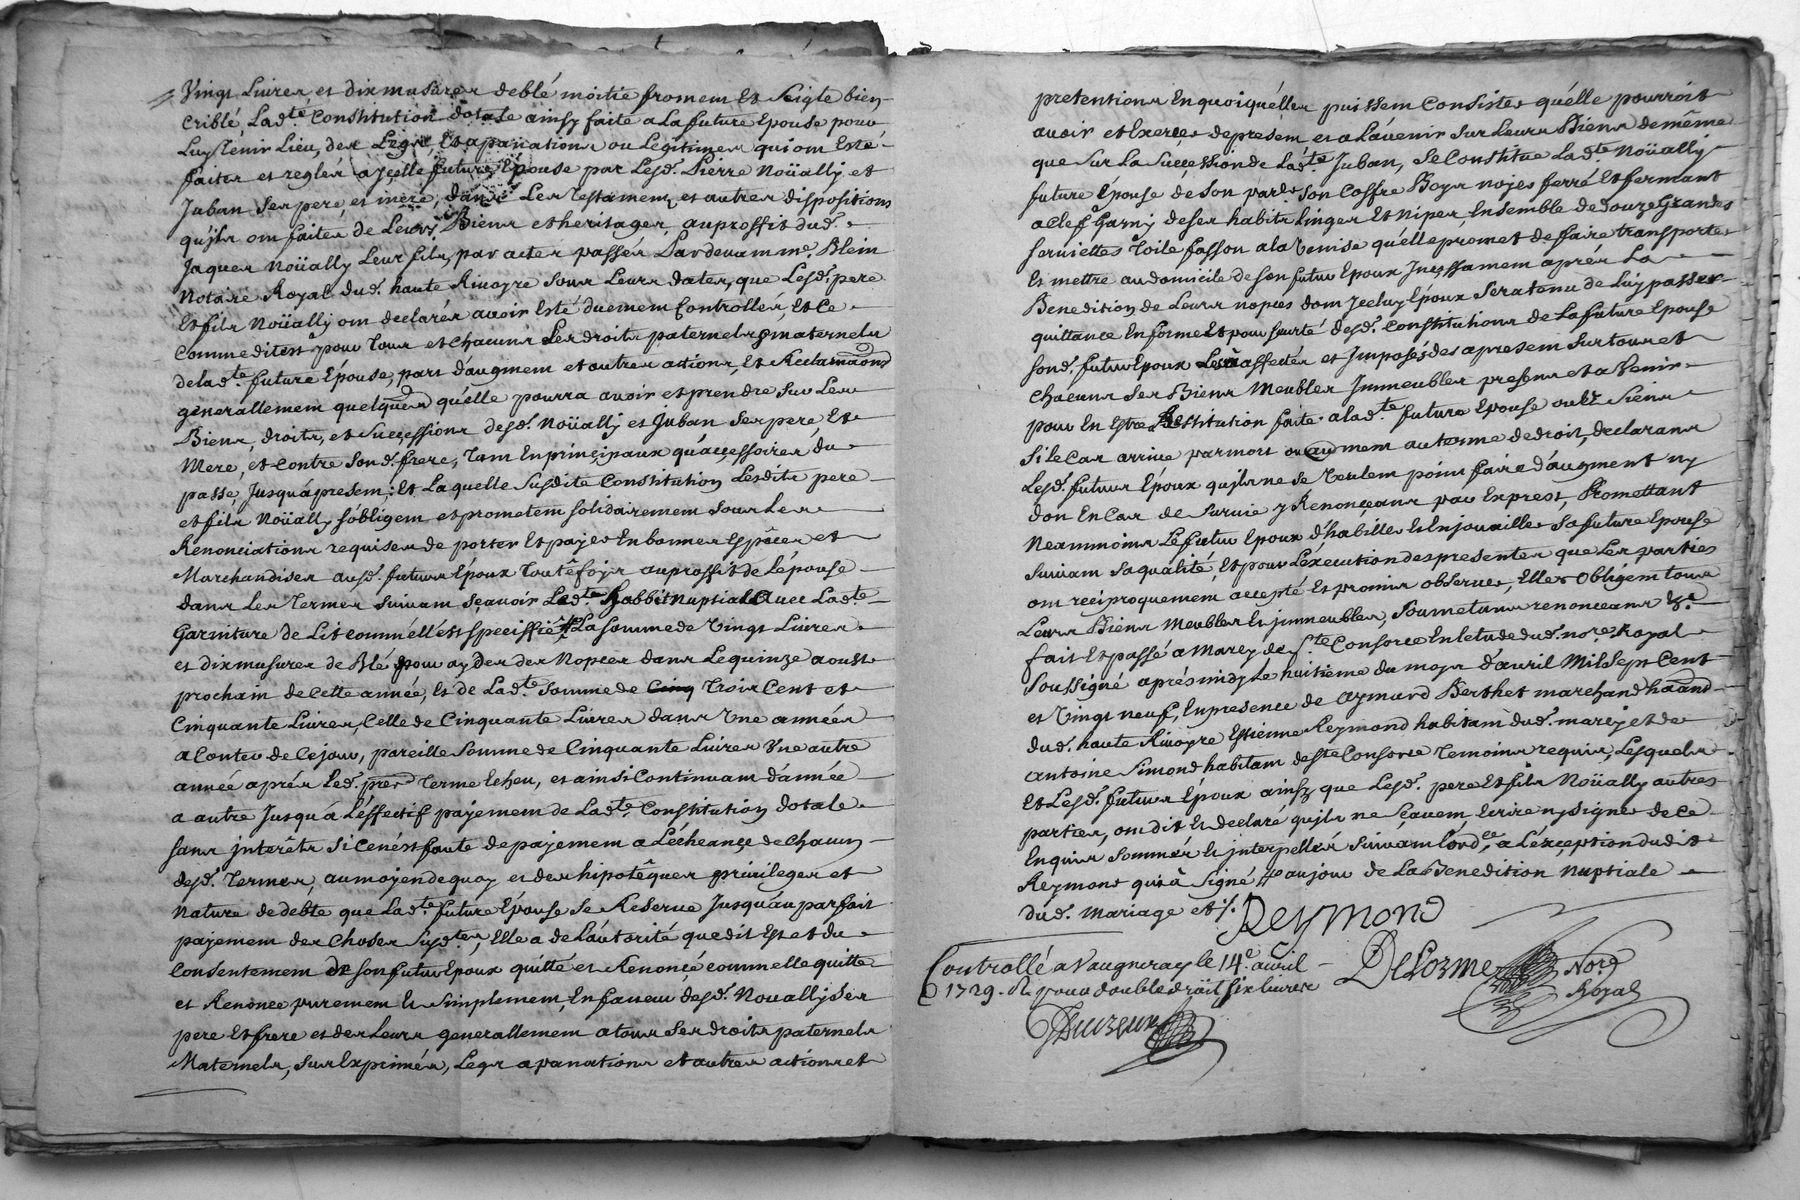 Vingt Livres et dix mesures de blé moitié froment Et Seigle bien
criblé, Lad.te Constitution dotale ainsy faite a La future Epouse pour
Luy tenir Lieu, des Legts, Et apanations ou Legitimes qui ont Esté
faites et reglés a jcelle future Epouse par Lesd. Pierre Noüally et
Juban Ses pere, et mere, dans Les Testament, et autres dispositions
qu'jls ont faites de Leurs Biens et heritages, au proffit dud.
Jaques Noüally Leur fils, par actes passés Pardevant m.e Blein
Notaire Royal dud. haute Rivoyre Sous Leurs dates, que Lesd. pere
Et fils Noüally ont declarés avoir Esté duement Controllés, Et Ce
Comme dit est pour Tous et chacuns Les droits paternels & maternels
de lad.te future Epouse, part d'augment et autres actions, Et Reclamaôns
generallement quelques qu'elle pourra avoir et prendre Sur Les
Biens, droits, et Successions desd. Noüally et Juban Ses pere, Et
Mere, et Contre Sond. frere, Tant En principaux qu'accessoires du
passé, Jusqu'a present; Et Laquelle Susdite Constitution Lesdits pere
et fils Noüally s'obligent et prometent solidairement Sous Les
Renonciations requises de porter Et payer En bonnes Espêces et
Marchandises ausd. futurs Epoux Toutêfois au proffit de L'epouse
dans Les Termes Suivant Sçavoir Led. habbit nuptial Avec Lad.te
Garniture de Lit comme elle est Speciffiée La Somme de Vingt Livres
et dix mesures de Blé pour ayder des Nopces dans Le quinze aoust
prochain de cette année, Et de Lad.te Somme de Cinq Trois Cent et
Cinquante Livres, Celle de Cinquante Livres dans Une année
a Conter de Ce jour, pareille Somme de Cinquante Livres Une autre
année aprés Led. pre.r Terme Echeu, et ainsi Continuant d'année
a autre Jusqu'a L'effectif payement de Lad.te Constitution dotale
sans jnterêts Si Ce n'est faute de payement a L'écheance de Chacun
desd. Termes, au moyen de quoy et des hipotêques privileges et
Nature de debte que Lad.te future Epouse Se Reserve Jusqu'au parfait
payement des Choses Susd.tes, Elle a de L'autorité que dit Est et du
Consentement de son futur Epoux quitté et Renoncé comme elle quitte
et Renonce purement Et Simplement, En faveur desd. Noually Ses
pere Et frere et des Leurs generallement a tous Ses droits paternels
Maternels, Sus Exprimés, Legts apanations et autres actions et
pretentions En quoi qu'elles puissent Consister qu'elle pourroit
avoir et Exercer de present, et a L'avenir Sur Leurs Biens de même
que Sur La Succession de Lad.te Juban, Se Constitue Lad.te Noüally
future Epouse de Son par.er Son Coffre Boys noyer ferré Et fermant
a Clef Garny de Ses habits linges Et Nipes, Ensemble de douze Grandes
serviettes Toile fasson a la Venise qu'elle promet de faire transporter
Et mettre au domicile de Son futur Epoux Incessament aprés La
Benediction de Leurs nopces dont Jceluy Epoux Sera tenu de Luy passer
quittance En forme Et pour Surté desd. constitutions de La future Epouse
Sond. futur Epoux Les a affectées et Jmposées des a present Sur tous et
chacuns Ses Biens Meubles Jmmeubles presens et a Venir
pour En Estre Restitution faite a lad.te future Epouse ou les Siens
Si le Cas arrive par mort ou autrement au terme de droit, declarans
Lesd. futurs Epoux qu'jls ne Se Veulent point faire d'augment ny
don En Cas de Survie y Renonceans par Exprest, Promettant
Neanmoins Le futur Epoux d'habiller Et Enjouailler Sa future Epouse
Suivant Sa qualité, Et pour L'execution des presentes que Les parties
ont reciproquement accepté Et promis observer, Elles Obligent tous
Leurs Biens Meubles Et jmmeubles, Soumetans renonceans &a
fait Et passé a Marcy de S.te Consorce En L'etude dud. no.re Royal
Soussigné aprés midy Le huitieme du moys d'avril Mil Sept Cent
et Vingt neuf, En presence de Aymard Berthet marchand ha͂nt
dud. haute Rivoyre Estienne Reymond habitant dud. marcy et de
Antoine Simond habitant de S.te Consorce Temoins requis, Lesquels
Et Lesd. futurs Epoux ainsy que Lesd. pere Et fils Noüally autres
parties, ont dit Et declaré qu'jls ne Sçavent, Ecrire ny Signer de Ce
Enquis Sommés Et jnterpellés Suivant L'ord.ce a L'exception dudit
Reymond qui a Signé au jour de La Benediction nuptiale
dud. Mariage et /.
Reymond
Controllé a Vaugneray le 14.e avril
1729. R. pour double droit, six livres
Delorme Nore.
Royal